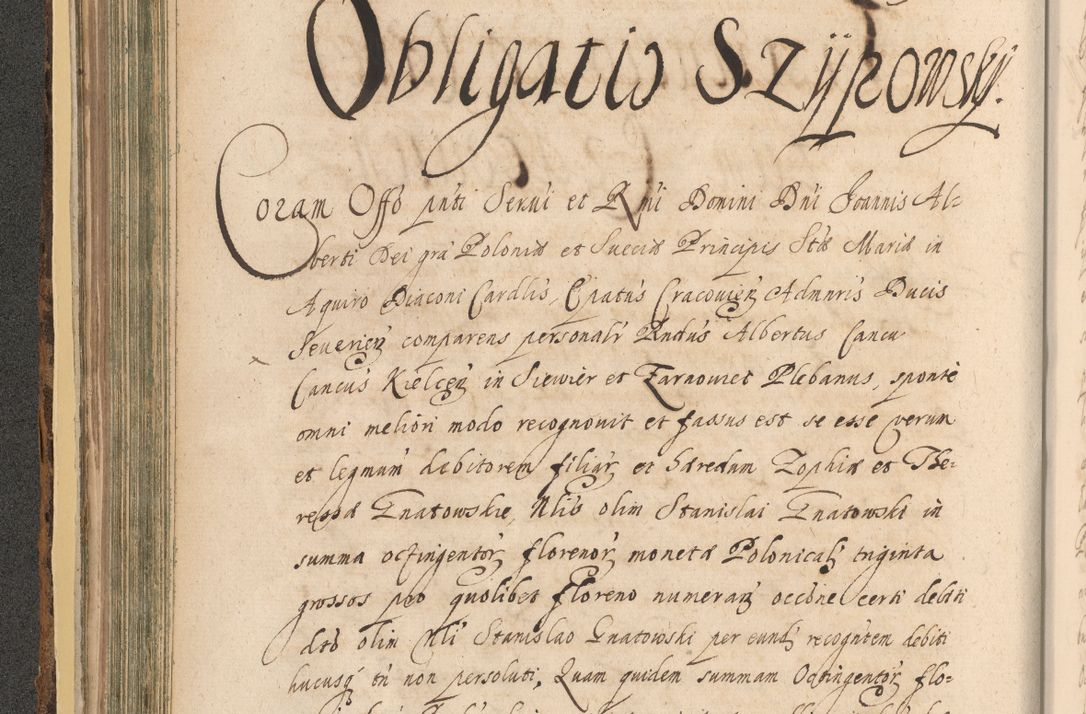 Obligatio Szÿpowskÿ.
Coram Offō pn̄ti Serni et Rn̄i Domini Dn̄i Joannis Al-
berti Dei grā Poloniæ et Sueciæ Principis Stæ Mariæ in
Aquiro Diaconi Cardlis, Epatūs Cracovien Admnris Ducis
Severien comparens personalr Rndus Albertus Cancu
Cancūs Kielcen in Siewier et Żarnowiec Plebanus, sponte
omni meliori modo recognovit et fassus est se esse verum
et legmum debitorem filiar et hæredum Zophiæ et The-
ressæ Gnatowskie, Nlis olim Stanislai Gnatowski in
summa octingentor florenor monetæ Polonical triginta
grossos pro quolibet floreno numeran occōne certi debiti
dto olim Nli Stanislao Gnatowski per eund recogntem debiti
hucusq tn̄ non persoluti, Quam quidem summam Octingentor flo-